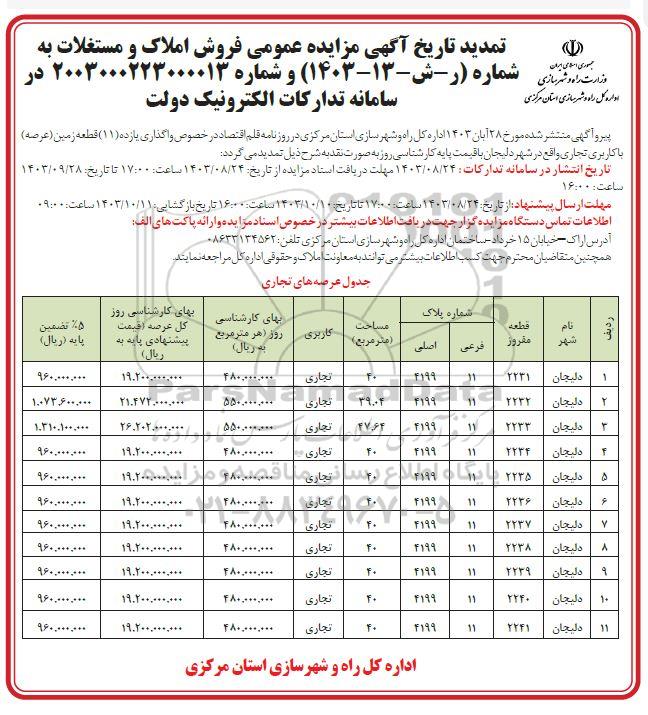 تمدید تاریخ آگهی مزایده عمومی فروش املاک و مستغلات به
شماره (ر-ش-۱۳-۱۴۰۳) و شماره ۲۰۰۳۰۰۰۲۲۳۰۰۰۰۱۳ در
سامانه تدارکات الکترونیک دولت
جمهوری اسلامی ایران
وزارت راه و شهرسازی
اداره کل راه و شهرسازی استان مرکزی
پیرو آگهی منتشر شده مورخ ۲۸ آبان ۱۴۰۳ اداره کل راه و شهرسازی استان مرکزی در روزنامه قلم اقتصاد در خصوص واگذاری یازده (۱۱) قطعه زمین (عرصه)
با کاربری تجاری واقع در شهر دلیجان با قیمت پایه کارشناسی روز به صورت نقد به شرح ذیل تمدید می گردد:
تاریخ انتشار در سامانه تدارکات : ۱۴۰۳/۰۸/۲۴ مهلت دریافت اسناد مزایده از تاریخ: ۱۴۰۳/۰۸/۲۴ ساعت: ۱۷:۰۰ تا تاریخ: ۱۴۰۳/۰۹/۲۸
ساعت: ۱۶:۰۰
مهلت ارسال پیشنهاد: از تاریخ: ۱۴۰۳/۰۸/۲۴ ساعت: ۱۷:۰۰ تا تاریخ: ۱۴۰۳/۱۰/۱۰ ساعت: ۱۶:۰۰ تاریخ بازگشایی: ۱۴۰۳/۱۰/۱۱ ساعت: ۰۹:۰۰
اطلاعات تماس دستگاه مزایده گزار جهت دریافت اطلاعات بیشتر در خصوص اسناد مزایده و ارائه پاکت های الف:
آدرس اراک - خیابان ۱۵ خرداد - ساختمان اداره کل راه و شهرسازی استان مرکزی تلفن: ۰۸۶۳۳۱۳۴۵۶۲
همچنین متقاضیان محترم جهت کسب اطلاعات بیشتر می توانند به معاونت املاک و حقوقی اداره کل مراجعه نمایند.
جدول عرصه های تجاری
ردیف نام شهر قطعه مفروز شماره پلاک فرعی اصلی مساحت (مترمربع) کاربری بهای کارشناسی روز (هر مترمربع به ریال) بهای کارشناسی روز کل عرصه (قیمت پیشنهادی پایه به ریال) ۵٪ تضمین پایه (ریال)
۱ دلیجان ۲۲۳۱ ۱۱ ۴۱۹۹ ۴۰ تجاری ۴۸۰.۰۰۰.۰۰۰ ۱۹.۲۰۰.۰۰۰.۰۰۰ ۹۶۰.۰۰۰.۰۰۰
۲ دلیجان ۲۲۳۲ ۱۱ ۴۱۹۹ ۳۹.۰۴ تجاری ۵۵۰.۰۰۰.۰۰۰ ۲۱.۴۷۲.۰۰۰.۰۰۰ ۱.۰۷۳.۶۰۰.۰۰۰
۳ دلیجان ۲۲۳۳ ۱۱ ۴۱۹۹ ۴۷.۶۴ تجاری ۵۵۰.۰۰۰.۰۰۰ ۲۶.۲۰۲.۰۰۰.۰۰۰ ۱.۳۱۰.۱۰۰.۰۰۰
۴ دلیجان ۲۲۳۴ ۱۱ ۴۱۹۹ ۴۰ تجاری ۴۸۰.۰۰۰.۰۰۰ ۱۹.۲۰۰.۰۰۰.۰۰۰ ۹۶۰.۰۰۰.۰۰۰
۵ دلیجان ۲۲۳۵ ۱۱ ۴۱۹۹ ۴۰ تجاری ۴۸۰.۰۰۰.۰۰۰ ۱۹.۲۰۰.۰۰۰.۰۰۰ ۹۶۰.۰۰۰.۰۰۰
۶ دلیجان ۲۲۳۶ ۱۱ ۴۱۹۹ ۴۰ تجاری ۴۸۰.۰۰۰.۰۰۰ ۱۹.۲۰۰.۰۰۰.۰۰۰ ۹۶۰.۰۰۰.۰۰۰
۷ دلیجان ۲۲۳۷ ۱۱ ۴۱۹۹ ۴۰ تجاری ۴۸۰.۰۰۰.۰۰۰ ۱۹.۲۰۰.۰۰۰.۰۰۰ ۹۶۰.۰۰۰.۰۰۰
۸ دلیجان ۲۲۳۸ ۱۱ ۴۱۹۹ ۴۰ تجاری ۴۸۰.۰۰۰.۰۰۰ ۱۹.۲۰۰.۰۰۰.۰۰۰ ۹۶۰.۰۰۰.۰۰۰
۹ دلیجان ۲۲۳۹ ۱۱ ۴۱۹۹ ۴۰ تجاری ۴۸۰.۰۰۰.۰۰۰ ۱۹.۲۰۰.۰۰۰.۰۰۰ ۹۶۰.۰۰۰.۰۰۰
۱۰ دلیجان ۲۲۴۰ ۱۱ ۴۱۹۹ ۴۰ تجاری ۴۸۰.۰۰۰.۰۰۰ ۱۹.۲۰۰.۰۰۰.۰۰۰ ۹۶۰.۰۰۰.۰۰۰
۱۱ دلیجان ۲۲۴۱ ۱۱ ۴۱۹۹ ۴۰ تجاری ۴۸۰.۰۰۰.۰۰۰ ۱۹.۲۰۰.۰۰۰.۰۰۰ ۹۶۰.۰۰۰.۰۰۰
ParsNamadData
پایگاه اطلاع رسانی مناقصه و مزایده
۰۲۱-۸۸۳۴۹۶۷۰-۵
اداره کل راه و شهرسازی استان مرکزی